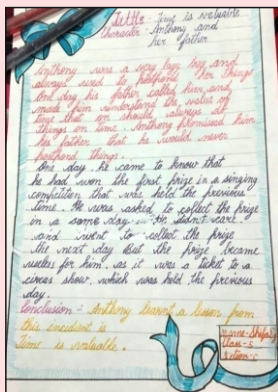 Title - Time is valuable
Character - Anthony and
her father
Anthony was a very lazy boy and
always used to postpone her things
One day his father called him and
made him understand the value of
time that on should always do
things on time. Anthony promised him
her father that he would never
postpond things.
One day, he came to know that
he had won the first prize in a singing
competition that was held the previous
time. He was asked to collect the prize
in a same day. He didn't care
and went to collect the prize
the next day But the prize became
useless for him, as it was a ticket to a
circus show which was held the previous
day.
Conclusion - Anthony learnt a lesson from
this incident is
Time is valuable.
Name -
Class - 5
Section - C